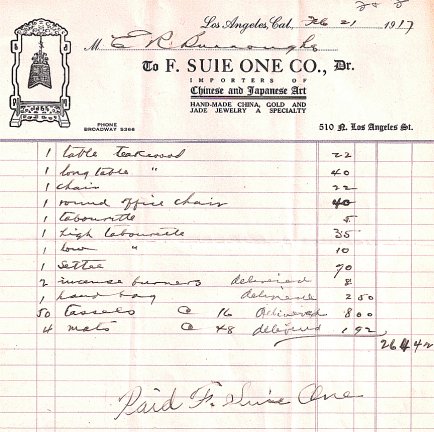 Los Angeles, Cal., Feb 21 1917
M. E R. Burroughs
To F. SUIE ONE CO., Dr.
IMPORTERS OF
Chinese and Japanese Art
HAND-MADE CHINA, GOLD AND
JADE JEWELRY A SPECIALTY
PHONE
BROADWAY 5366
510 N. Los Angeles St.
1 table teakwood 22
1 long table " 40
1 chair 22
1 round office chair 40
1 tabourette 5
1 high tabourette 35
1 low " 10
1 settee 90
2 incense burners delivered 8
1 hand bag delivered 2 50
50 tassels @ 16 delivered 8 00
4 mats @ 48 delivered 1 92
264 42
Paid F. Suie One